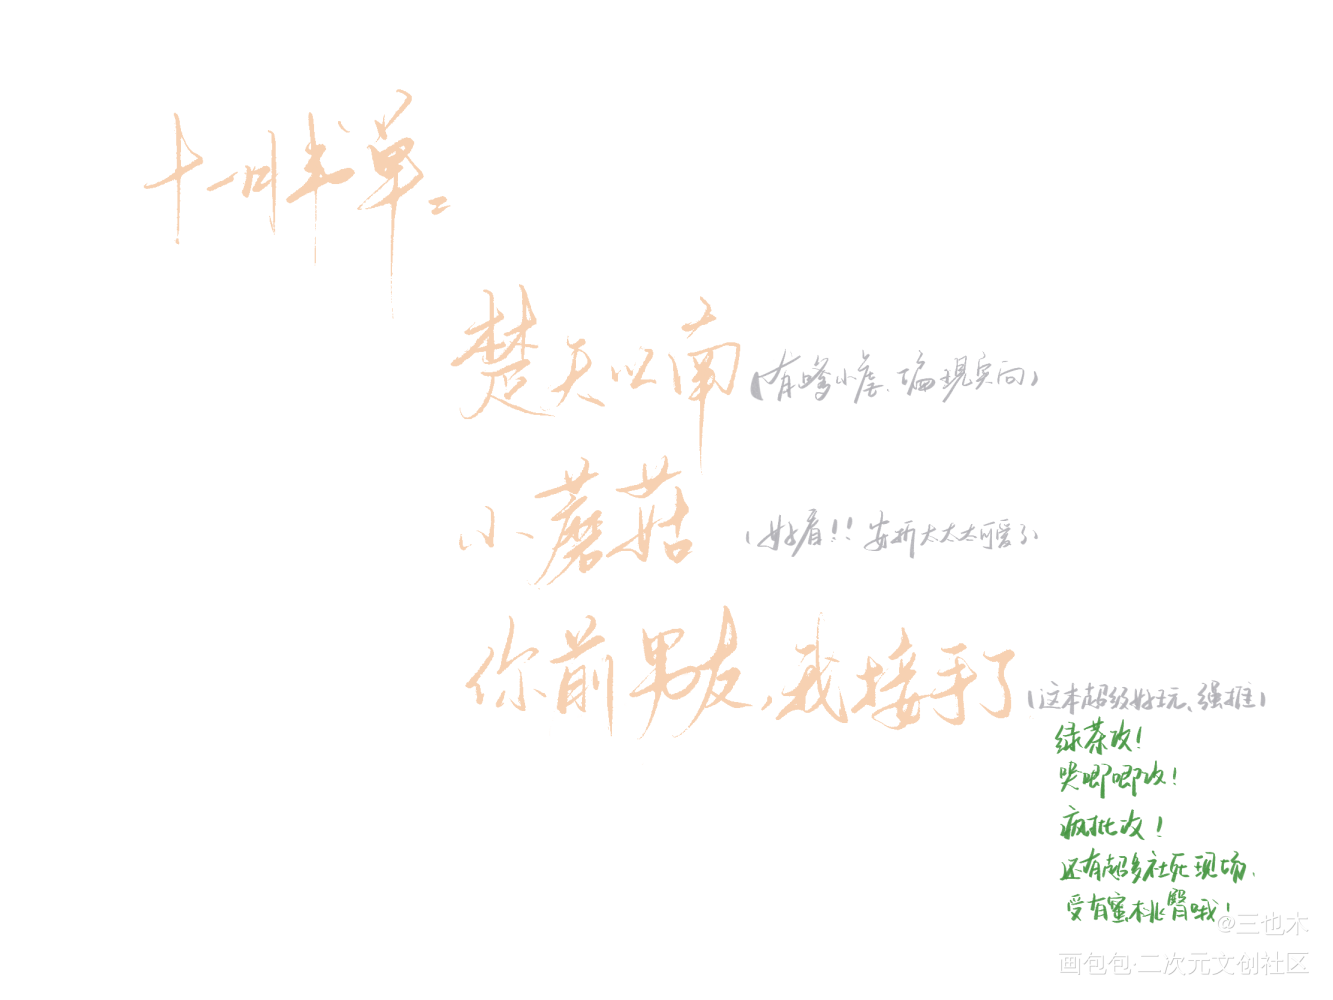 十一月书单：
楚天以南（有嗲小虐、偏现实向）
小蘑菇（好看!! 安折太太太可爱了）
你前男友，我接手了（这本超级好玩、强推）
绿茶攻！
哭唧唧攻！
疯批攻！
还有超多社死现场.
受有蜜桃臀哦！
@三也木
画包包·二次元文创社区